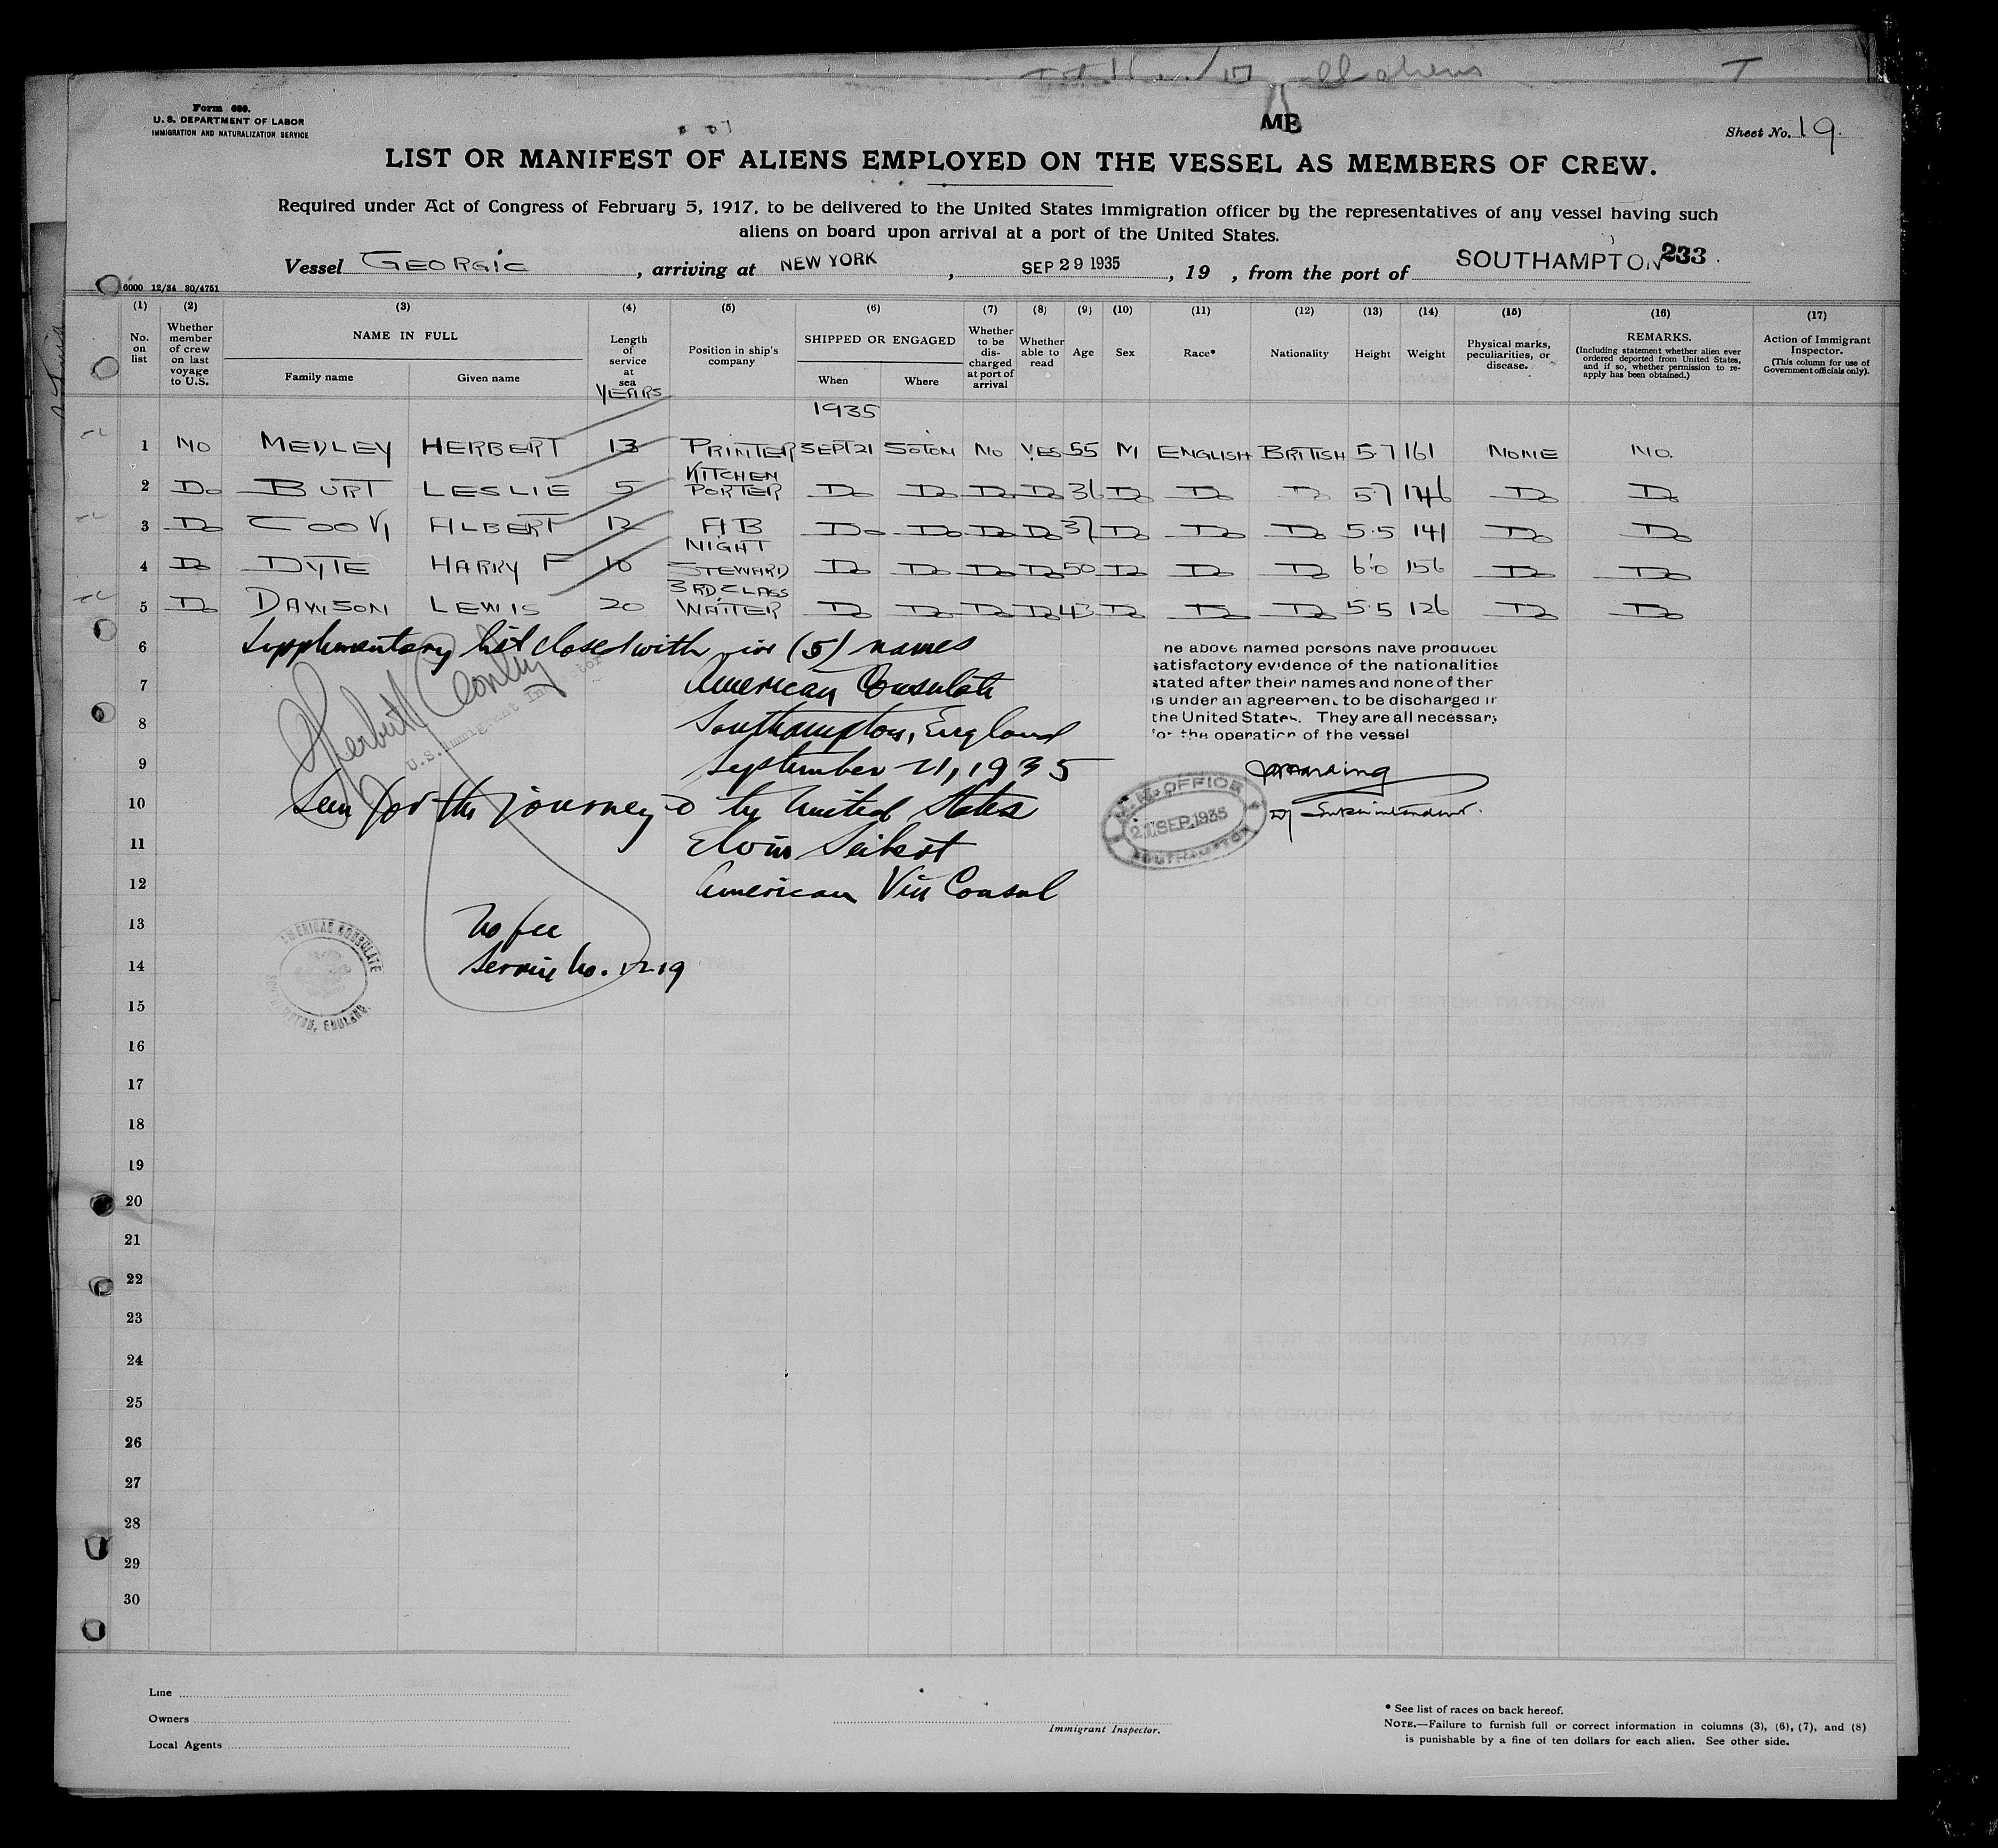 aliens T
Form 680.
U. S. DEPARTMENT OF LABOR
IMMIGRATION AND NATURALIZATION SERVICE
ME
Sheet No. 19.
LIST OR MANIFEST OF ALIENS EMPLOYED ON THE VESSEL AS MEMBERS OF CREW.
Required under Act of Congress of February 5, 1917, to be delivered to the United States immigration officer by the representatives of any vessel having such
aliens on board upon arrival at a port of the United States.
Vessel GEORGIC, arriving at NEW YORK, SEP 29 1935, 19 , from the port of SOUTHAMPTON 233
6000 12/34 30/4751
(1) (2) (3) (4) (5) (6) (7) (8) (9) (10) (11) (12) (13) (14) (15) (16) (17)
No. on list
Whether member of crew on last voyage to U.S.
NAME IN FULL
Family name Given name
Length of service at sea
YEARS
Position in ship's company
SHIPPED OR ENGAGED
When Where
Whether to be discharged at port of arrival
Whether able to read
Age
Sex
Race*
Nationality
Height
Weight
Physical marks, peculiarities, or disease.
REMARKS.
(Including statement whether alien ever ordered deported from United States, and if so, whether permission to re-apply has been obtained.)
Action of Immigrant Inspector.
(This column for use of Government officials only).
1935
1 NO MEDLEY HERBERT 13 PRINTER SEPT 21 SOTON NO YES 55 M ENGLISH BRITISH 5·7 161 NONE NO.
2 Do BURT LESLIE 5 KITCHEN PORTER Do Do Do Do 36 Do Do Do 5·7 146 Do Do
3 Do COOK ALBERT 12 AB Do Do Do Do 37 Do Do Do 5·5 141 Do Do
4 Do DYTE HARRY F 10 NIGHT STEWARD Do Do Do Do 50 Do Do Do 6·0 156 Do Do
5 Do DAWSON LEWIS 20 3RD CLASS WAITER Do Do Do Do 43 Do Do Do 5·5 126 Do Do
6 Supplementary list closed with five (5) names
7 American Consulate
8 Southampton, England
9 September 21, 1935
10 Seen for the journey to the United States
11 Elvin Seibert
12 American Vice Consul
13 No fee
14 Service No. 1219
15
16
17
18
19
20
21
22
23
24
25
26
27
28
29
30
U.S. Immigrant Inspector
he above named persons have produced
satisfactory evidence of the nationalities
stated after their names and none of ther
is under an agreement to be discharged in
the United States. They are all necessary
for the operation of the vessel
Superintendent.
M.M. OFFICE
21 SEP. 1935
SOUTHAMPTON
AMERICAN CONSULATE
SOUTHAMPTON, ENGLAND.
Line
Owners
Local Agents
Immigrant Inspector.
* See list of races on back hereof.
NOTE.—Failure to furnish full or correct information in columns (3), (6), (7), and (8)
is punishable by a fine of ten dollars for each alien. See other side.